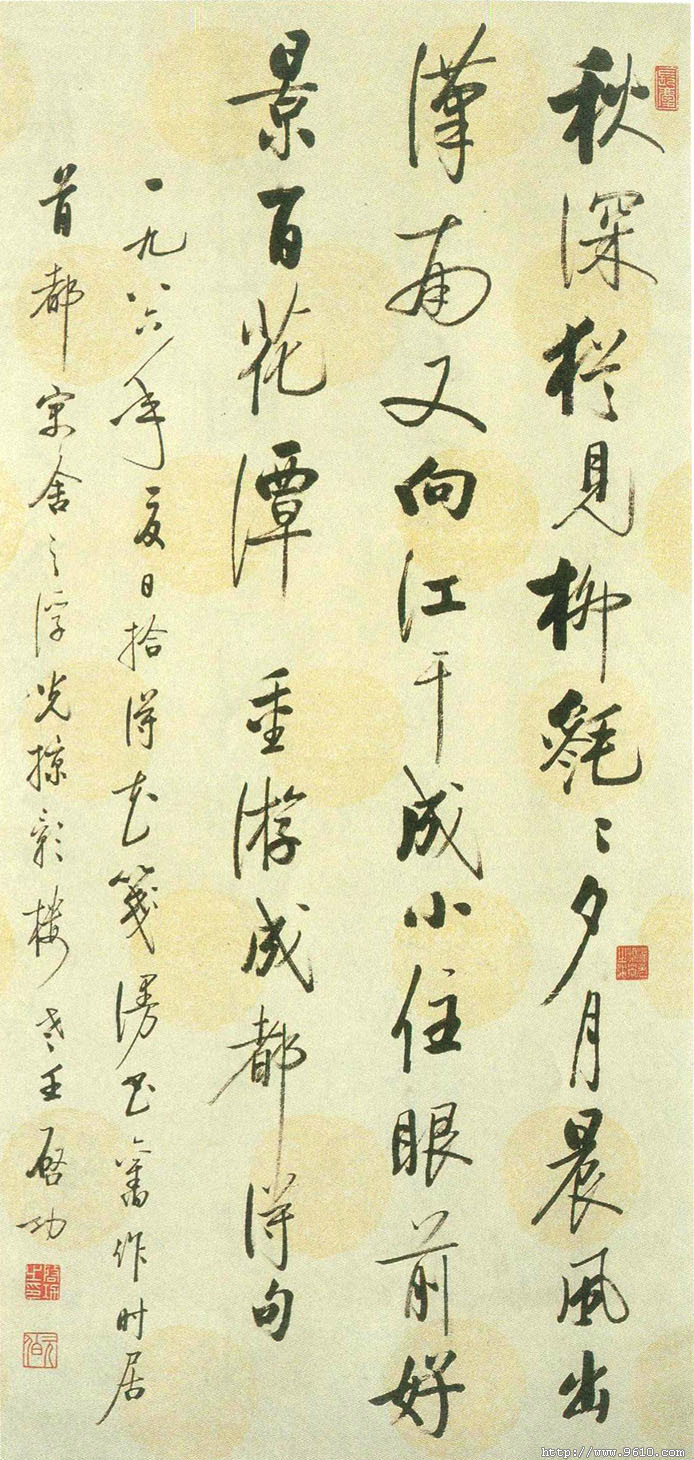 秋深犹见柳毿〻夕月晨风出
汉南又向江干成小住眼前好
景百花潭 重游成都得句
一九八六年夏日拾得花笺漫书旧作时居
首都寓舍之浮光掠影楼 启功
http://www.9610.com